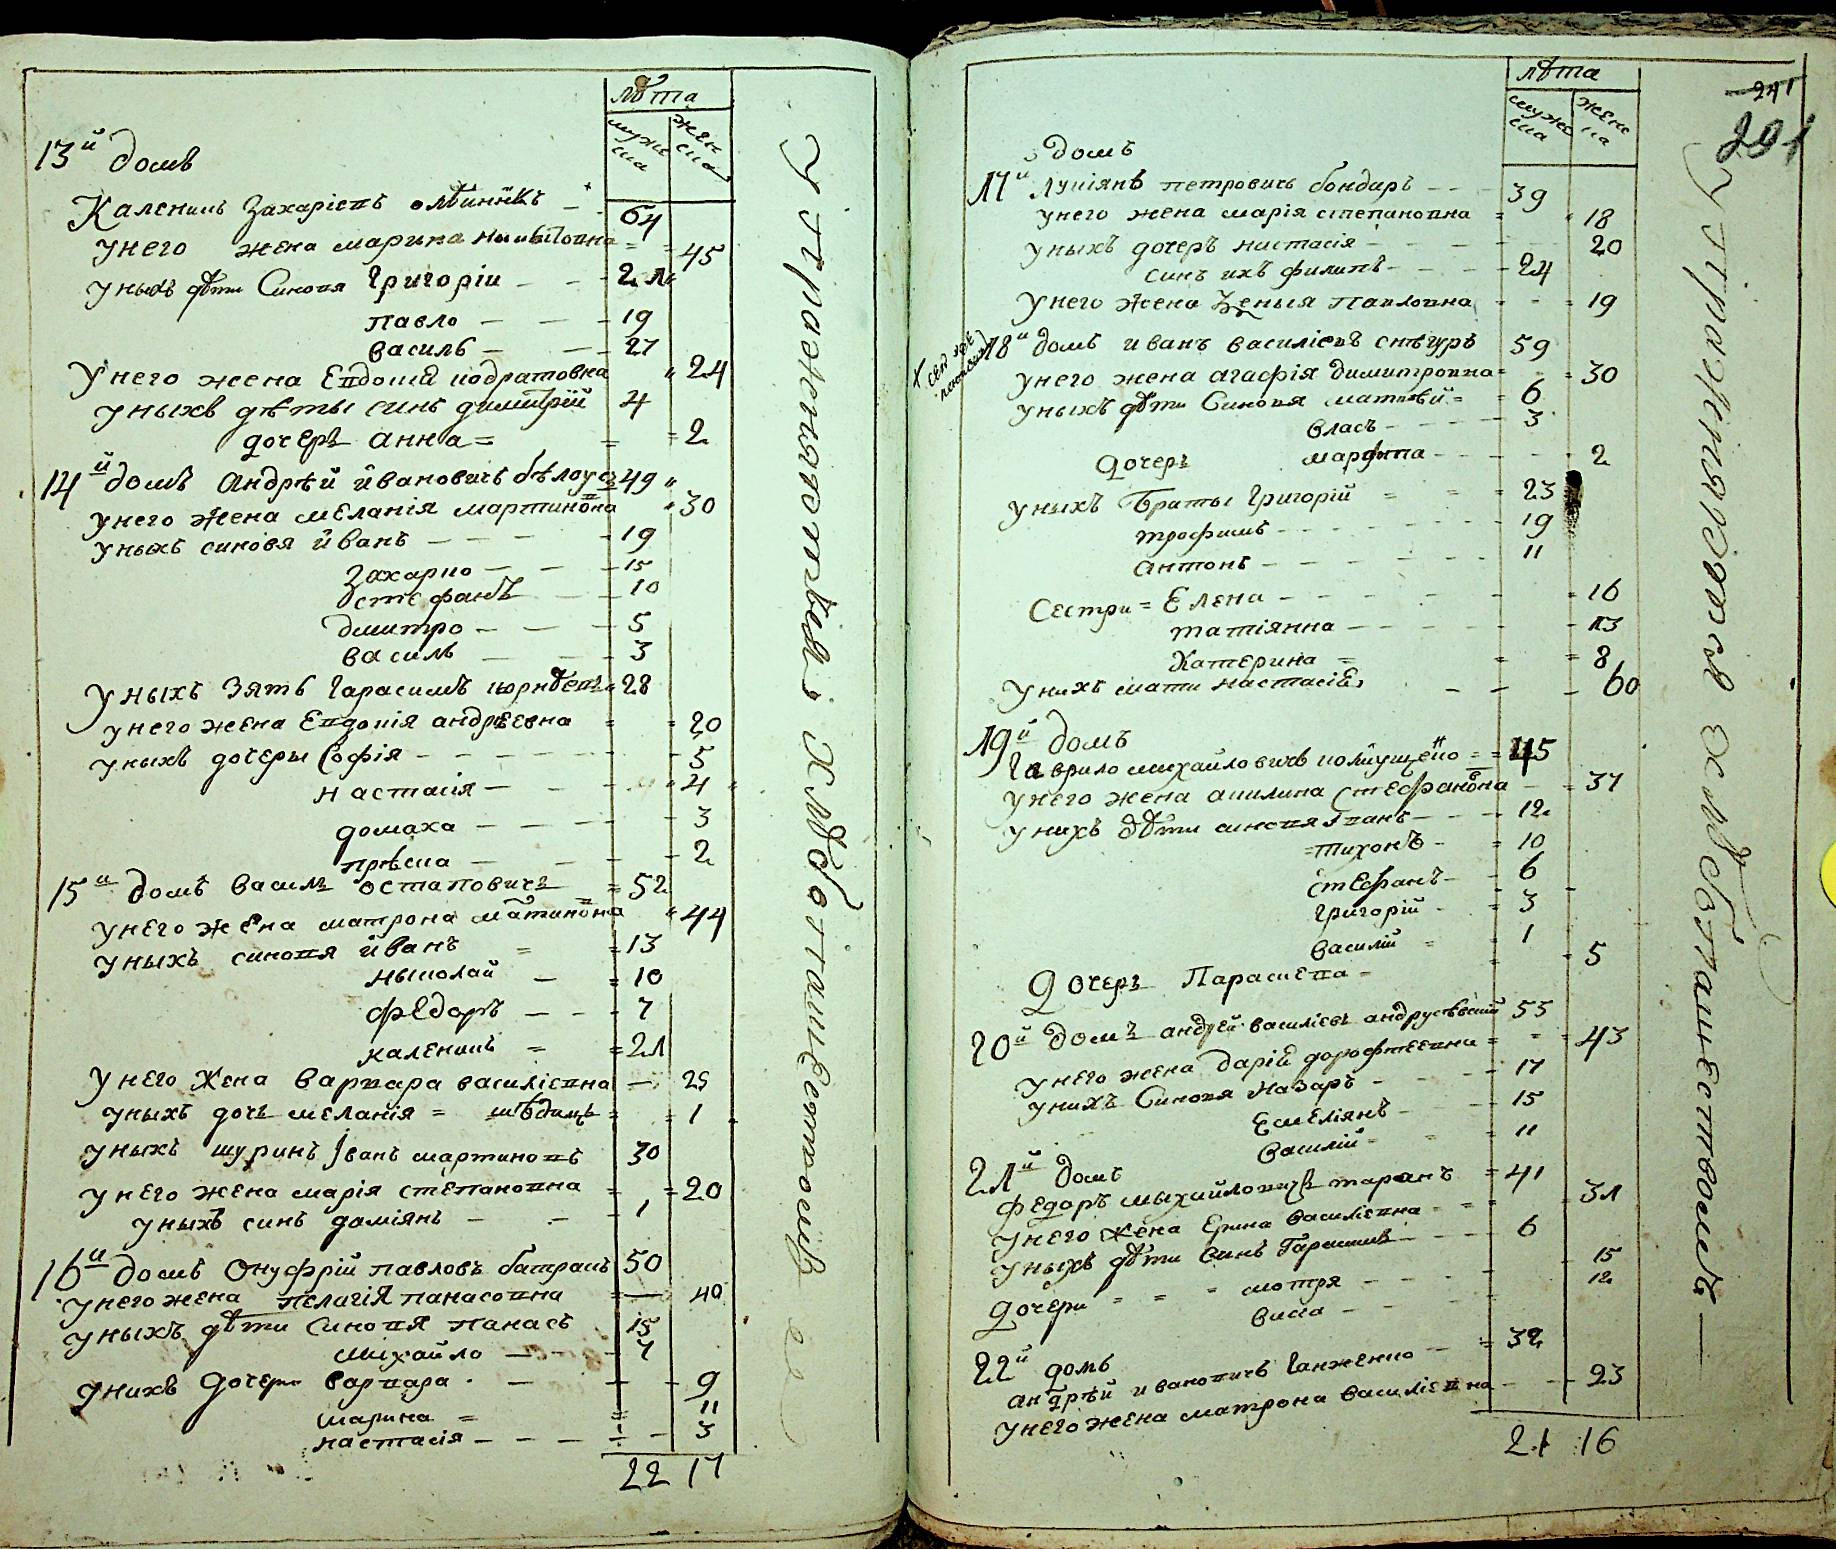 лѣта
мужеска
женска
13й домъ
Каленикъ Захаріевъ олѣйникъ 64
унего жена марина 45
уныхъ дѣти Синовя Григоріи 21
павло 19
василь 27
Унего жена Евдокиа кодратовна 24
уныхъ дѣты синъ димитрій 4
дочеръ анна 2
14й домъ Андрѣй ивановичъ бѣлоусъ 49
унего жена меланія мартиновна 30
уныхъ синовя иванъ 19
Захарко 15
стефанъ 10
дмитро 5
василь 3
уныхъ Зять Гарасимъ 28
унего жена Евдокія андрѣевна 20
уныхъ дочеры Софія 5
настасія 4
домаха 3
прѣска 2
15й домъ василь остаповичъ 52
унего жена матрона мартиновна 44
уныхъ синовя иванъ 13
ныколай 10
федоръ 7
каленикъ 21
Унего Жена варвара василіевна 25
уныхъ дочъ меланія 1
уныхъ шуринъ Іванъ мартиновъ 30
унего жена марія степановна 20
уныхъ синъ даміянъ 1
16й домъ Онуфрій павловъ батракъ 50
унего жена пелагія панасовна 40
уныхъ дѣти Синовя панасъ 15
михайло 7
унихъ дочери варвара 9
марина 11
настасія 3
22 17
упражняются хлѣботашествомъ
лѣта
мужеска
женска
241
291
домъ
17й Лукіянъ петровичъ бондаръ 39
унего жена марія степановна 18
уныхъ дочеръ настасія 20
синъ ихъ филипъ 24
Унего жена Ѯенъія павловна 19
18й домъ иванъ василіевъ снѣгуръ 59
унего жена агафія димитровна 30
уныхъ дѣти Синовя матвѣй 6
власъ 3
дочеръ марфина 2
уныхъ браты Григорій 23
трофимъ 19
антонъ 11
Сестри Елена 16
татіянна 13
Катерина 8
униxъ мати настасія 60
19й домъ
Гаврило михайловичъ 45
унего жена акилина стефановна 37
унихъ дѣти синовя іванъ 12
тихонъ 10
стефанъ 6
григорій 3
василій 1
Дочеръ Параскева 5
20й домъ андрей василіевъ андрусѣвскій 53
унего жена дарія дорофтеевна 43
унихъ Синовя назаръ 17
Емеліянъ 15
василій 11
21й домъ
федоръ мыхайловичъ таранъ 41
унего жена Ерина василіевна 31
уныхъ дѣти Синъ Гарасимъ 6
дочери мотря 15
васса 12
22й домъ
андрѣй ивановичъ Ганженко 32
унего жена матрона василіевна 23
21 16
упражняются хлѣботашествомъ